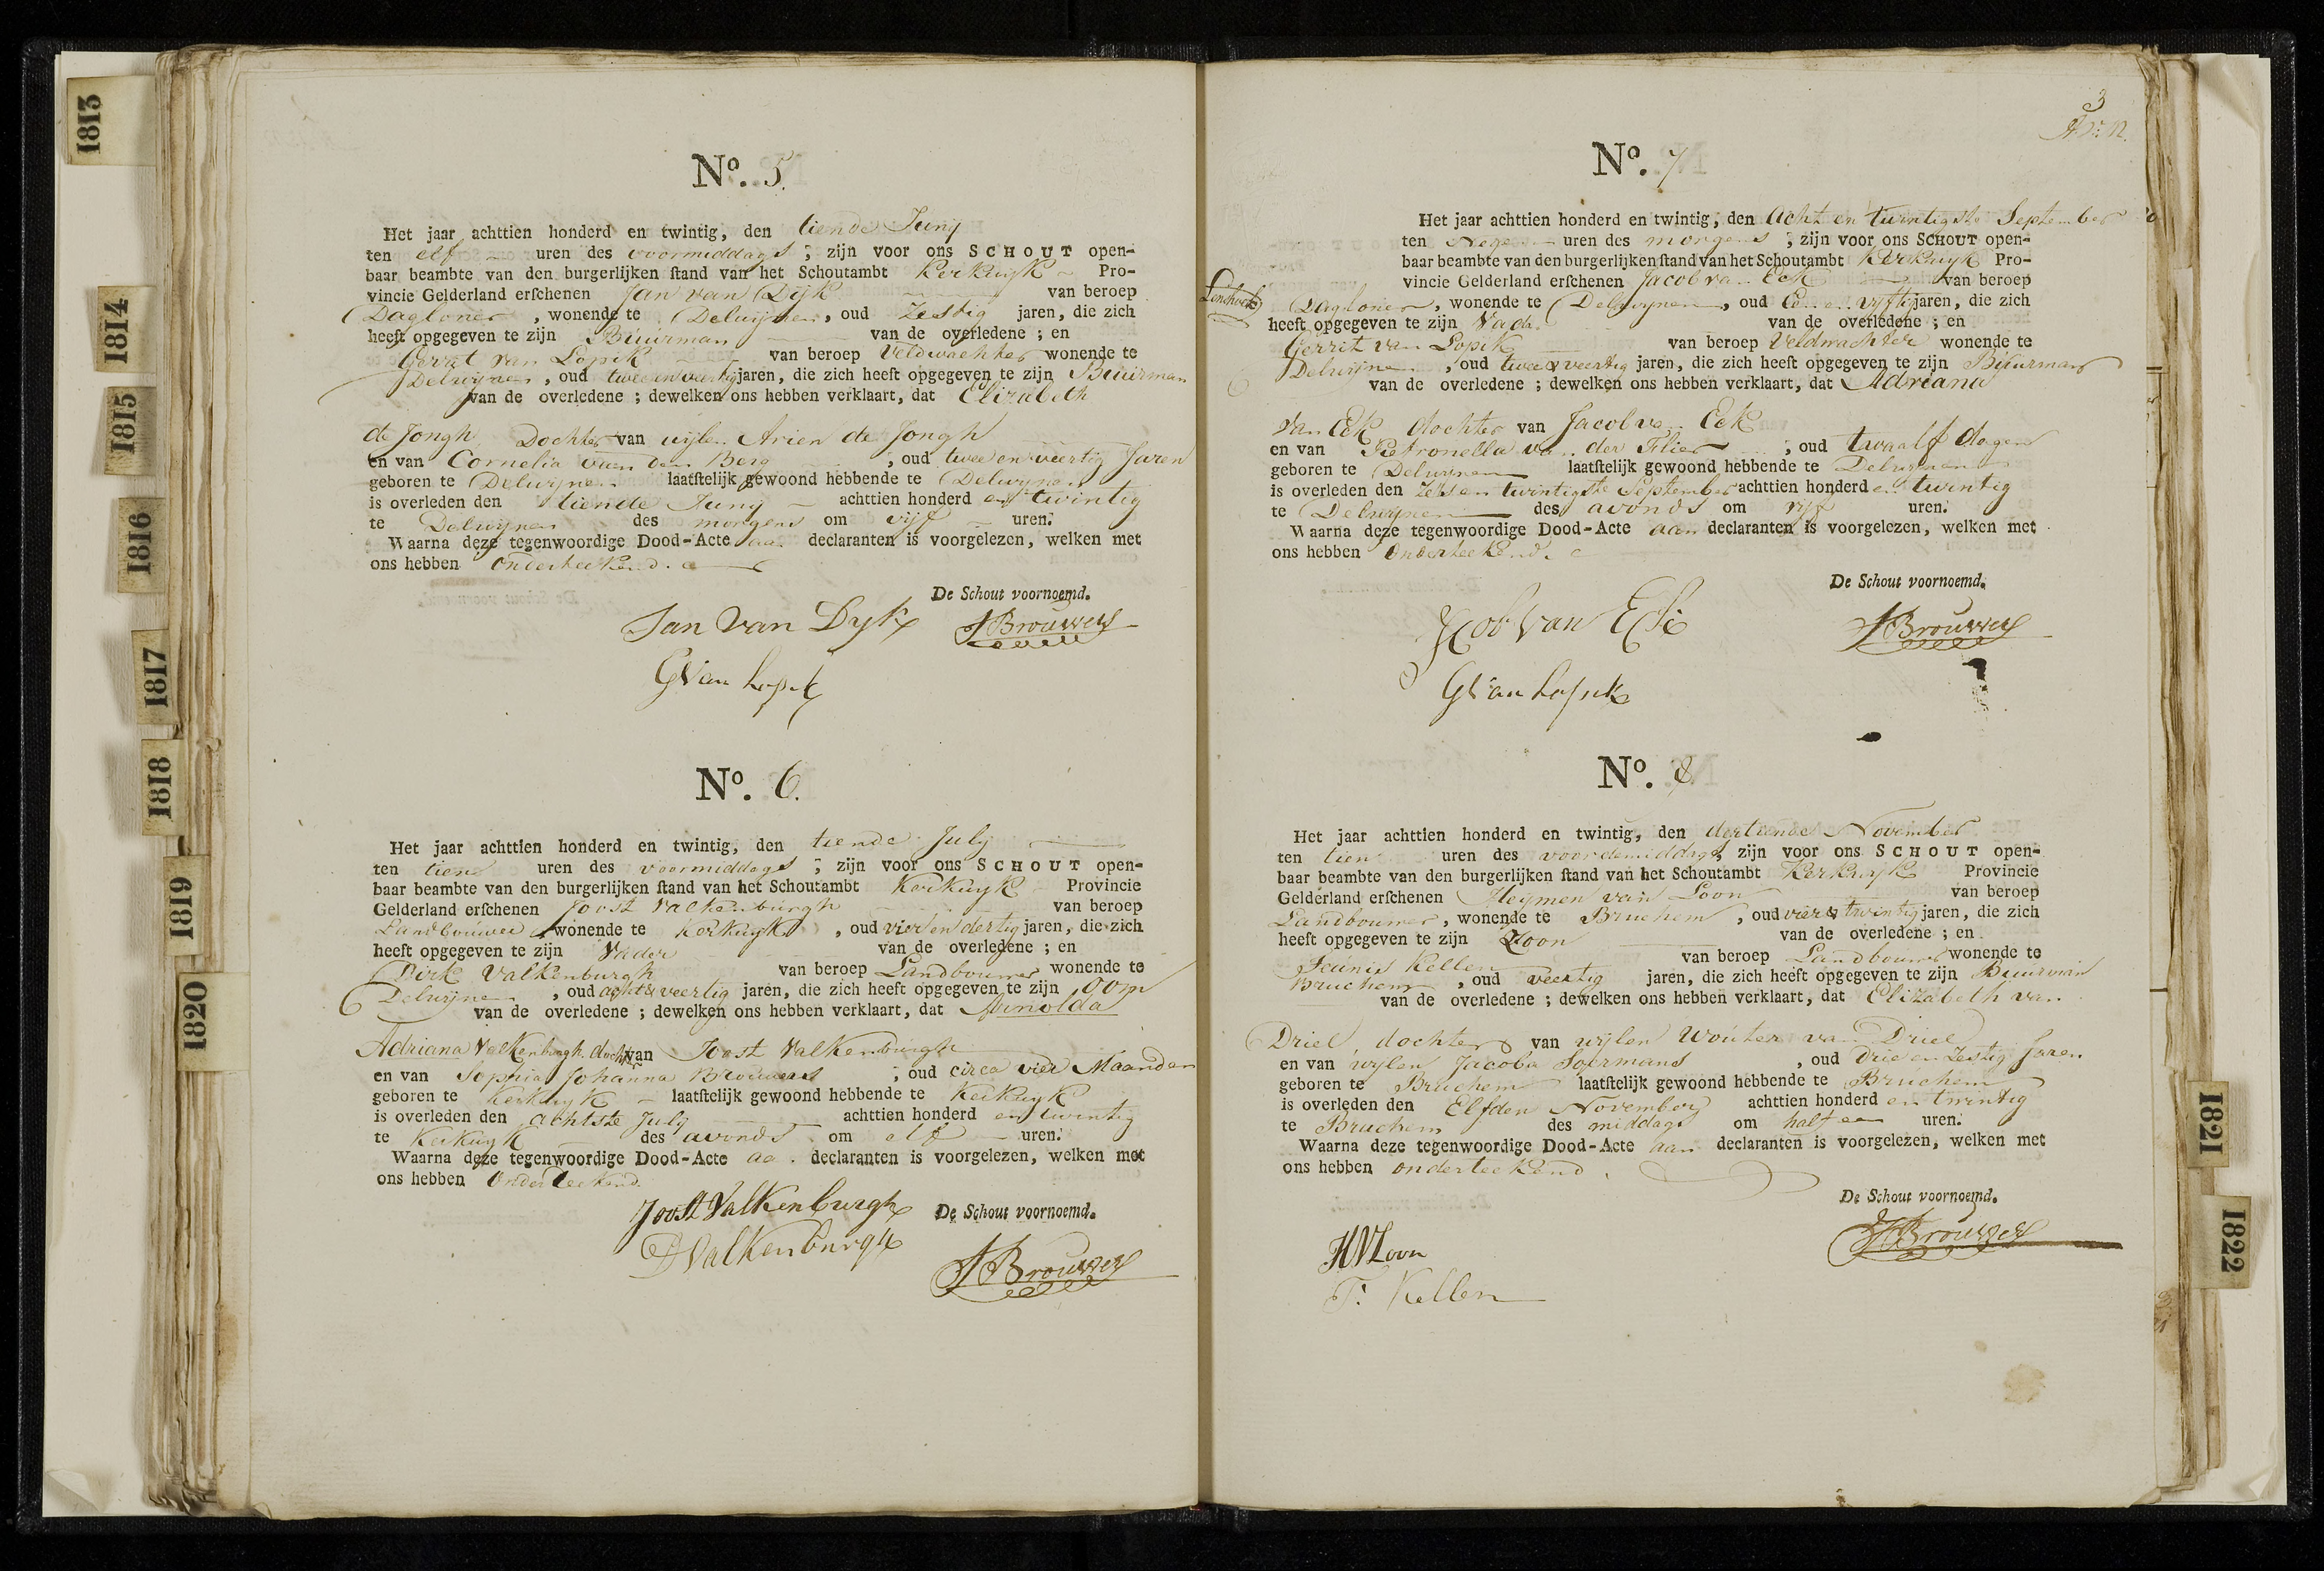 1813
1814
1815
1816
1817
1818
1819
1820
No. 5.
Het jaar achttien honderd en twintig, den tiende Juny
ten elf uren des voormiddags ; zijn voor ons SCHOUT open-
baar beambte van den burgerlijken ſtand van het Schoutambt Kerkwyk Pro-
vincie Gelderland erſchenen Jan van Dijk van beroep
Dagloner , wonende te Delwijnen, oud Zestig jaren, die zich
heeft opgegeven te zijn Buurman van de overledene ; en
Gerrit van Lopik van beroep Veldwachter wonende te
Delwijnen , oud twee en veertig jaren, die zich heeft opgegeven te zijn Buurman
van de overledene ; dewelken ons hebben verklaart, dat Elizabeth
de Jongh Dochter van wijlen Arien de Jongh
en van Cornelia van den Berg , oud twee en veertig Jaren
geboren te Delwijnen laatſtelijk gewoond hebbende te Delwijnen
is overleden den tiende Juny achttien honderd en twintig
te Delwijnen des morgens om vijf uren.
Waarna deze tegenwoordige Dood-Acte aan declaranten is voorgelezen, welken met
ons hebben onderteekend.
De Schout voornoemd.
Jan Van Dyk JBrouwers
GVan Lopik
No. 6.
Het jaar achttien honderd en twintig, den tiende July
ten tien uren des voormiddags ; zijn voor ons SCHOUT open-
baar beambte van den burgerlijken ſtand van het Schoutambt Kerkwyk Provincie
Gelderland erſchenen Joost Valkenburgh van beroep
Landbouwer wonende te Kerkwyk , oud vier en dertig jaren, die zich
heeft opgegeven te zijn Vader van de overledene ; en
Dirk Valkenburgh van beroep Landbouwer wonende te
Delwijnen , oud acht & veertig jaren, die zich heeft opgegeven te zijn oom
van de overledene ; dewelken ons hebben verklaart, dat Arnolda
Adriana Valkenburgh docht van Joost Valkenburgh
en van Sophia Johanna Brouwers ; oud circa vier Maanden
geboren te Kerkwyk laatſtelijk gewoond hebbende te Kerkwyk
is overleden den achtste July achttien honderd en twintig
te Kerkwyk des avonds om elf uren.
Waarna deze tegenwoordige Dood-Acte aan declaranten is voorgelezen, welken met
ons hebben Onderteekend.
Joost Valkenburgh De Schout voornoemd.
DValkenburgh
JBrouwers
3
No. 7
Het jaar achttien honderd en twintig, den Acht en twintigste September
ten Negen uren des morgens ; zijn voor ons SCHOUT open-
baar beambte van den burgerlijken ſtand van het Schoutambt Kerkwyk Pro-
vincie Gelderland erſchenen Jacob van Eck van beroep
Dagloner , wonende te Delwynen , oud Een en vyftig jaren, die zich
heeft opgegeven te zijn Vader van de overledene ; en
Gerrit van Lopik van beroep Veldwachter wonende te
Delwijnen , oud twee & veertig jaren, die zich heeft opgegeven te zijn Buurman
van de overledene ; dewelken ons hebben verklaart, dat Adriana
van Eck dochter van Jacob van Eck
en van Pietronella van der Flier ; oud twaalf dagen
geboren te Delwynen laatſtelijk gewoond hebbende te Delwynen
is overleden den Zes en twintigste September achttien honderd en twintig
te Delwynen des avonds om vijf uren.
Waarna deze tegenwoordige Dood-Acte aan declaranten is voorgelezen, welken met
ons hebben Onderteekend.
De Schout voornoemd.
Jacob Van Eck JBrouwers
GVan Lopik
No. 8
Het jaar achttien honderd en twintig, den dertiende November
ten tien uren des voordemiddags zijn voor ons SCHOUT open-
baar beambte van den burgerlijken ſtand van het Schoutambt Kerkwyk Provincie
Gelderland erſchenen Heymen van Loon van beroep
Landbouwer , wonende te Bruchem , oud vier & twintig jaren, die zich
heeft opgegeven te zijn Zoon van de overledene ; en
Teunis Kellen van beroep Landbouwer wonende te
Bruchem , oud veertig jaren, die zich heeft opgegeven te zijn Buurman
van de overledene ; dewelken ons hebben verklaart, dat Elizabeth van
Driel dochter van wijlen Wouter van Driel
en van wylen Jacoba , oud drie en Zestig Jaren
geboren te Bruchem laatſtelijk gewoond hebbende te Bruchem
is overleden den Elfden November achttien honderd en twintig
te Bruchem des middags om half een uren.
Waarna deze tegenwoordige Dood-Acte aan declaranten is voorgelezen, welken met
ons hebben onderteekend.
De Schout voornoemd.
HVLoon JBrouwers
T. Kellen
1821
1822